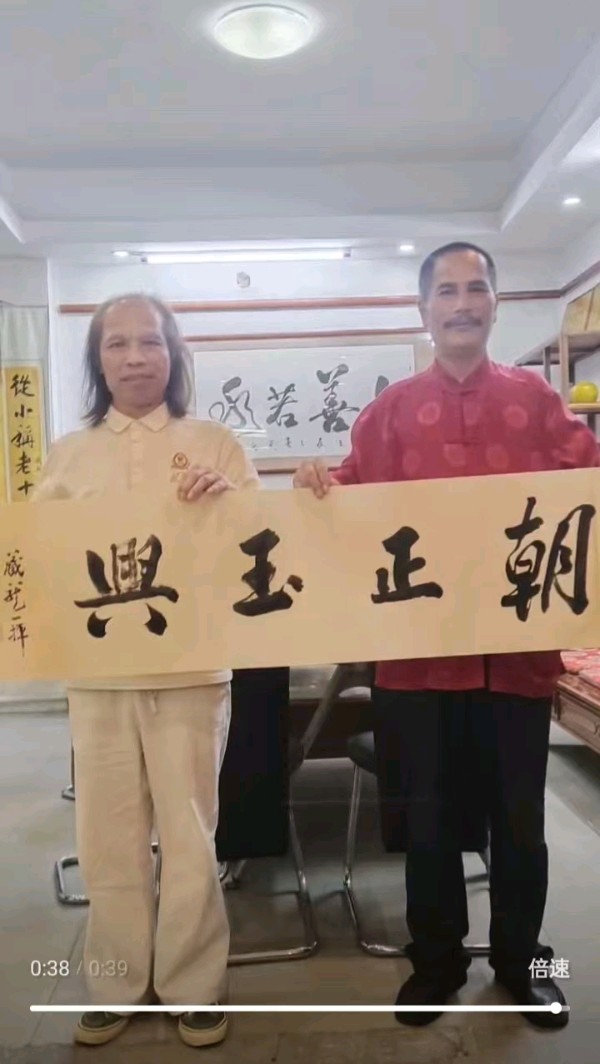 朝正玉興
藏龍一揮
上善若水
從小稱老十
0:38 / 0:39
倍速